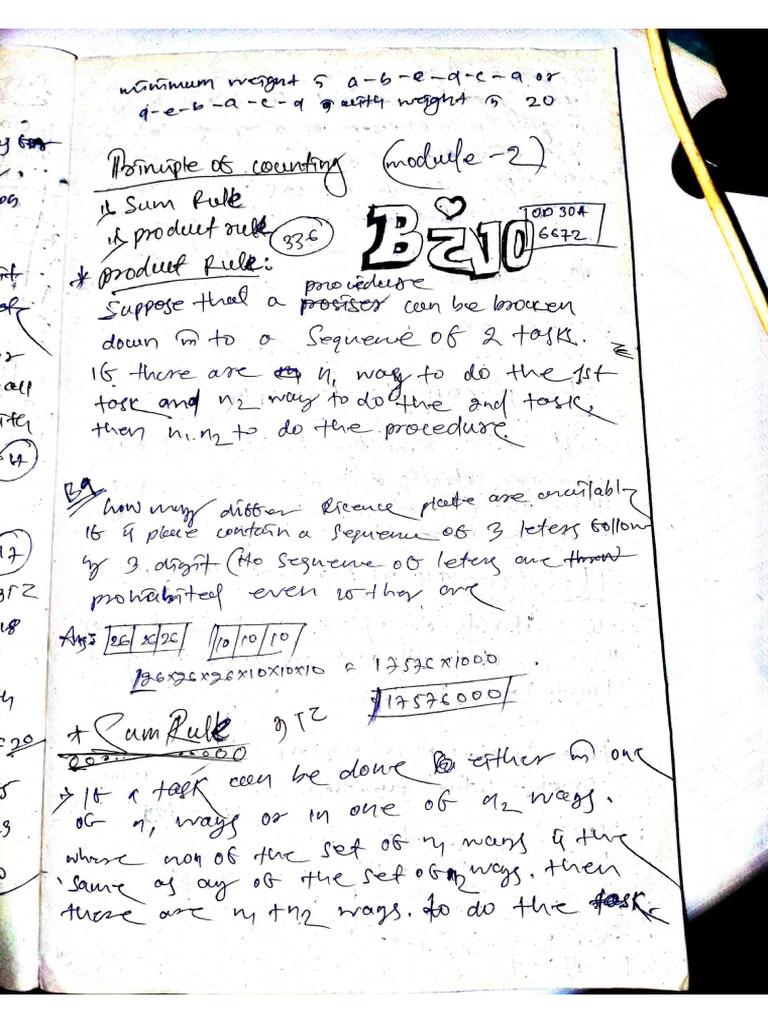 minimum weight is a-b-e-d-c-a or
d-e-b-a-c-d with weight is 20
Principle of counting (module-2)
is Sum Rule
is product rule
336
Bi10
OD 30A
6672
* product Rule:
procedure
Suppose that a can be broken
down in to a Sequence of 2 task.
If there are n1 way to do the 1st
task and n2 way to do the 2nd task,
then n1.n2 to do the procedure.
how many differ licence plate are availably
If a plate contain a sequence of 3 leters follow
by 3 digit (No sequence of leters are
prohibited even
Ans: 26 26 26 10 10 10
26x26x26x10x10x10 = 17576x1000
17576000
* Sum Rule
→ If a task can be done either in one
of n1 ways or in one of n2 ways.
where non of the set of n1 ways is the
same as ay of the set of n2 ways. then
there are n1+n2 ways. to do the task.
17
17
=20